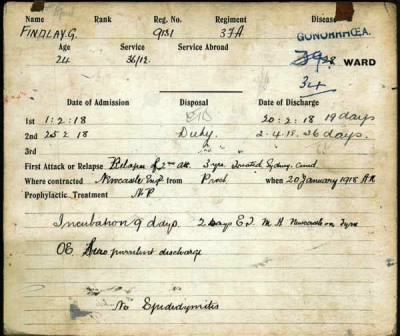 Name Rank Reg. No. Regiment Disease
FINDLAY.G. 9131 37A GONORRHŒA.
Age Service Service Abroad 28 WARD
24 36/12. 34
Date of Admission Disposal Date of Discharge
1st 1:2:18 20:2:18 19 days
2nd 25 2.18 Duty. 2.4.18. 36 days.
3rd
First Attack or Relapse Relapse of 2nd att. 3 yrs. treated Sydney.
Where contracted Newcastle Eng from Prost. when 20 January 1918
Prophylactic Treatment N.P
Incubation 9 days. 2 days E.T. M H Newcastle on Tyne
OE. Sero purulent discharge
No Epididymitis